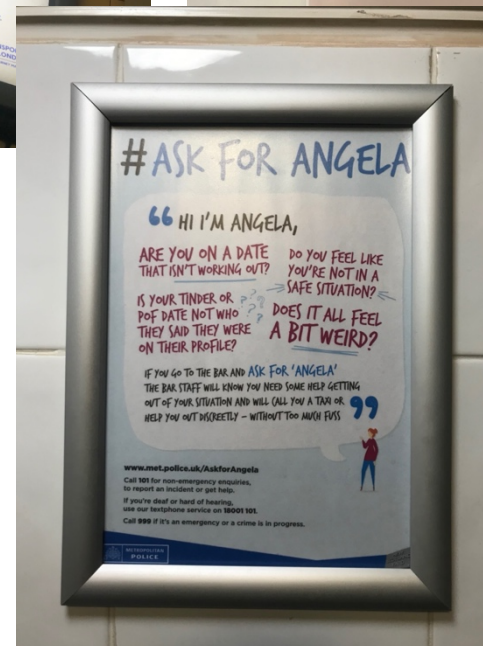 #ASK FOR ANGELA
“ HI I'M ANGELA,
ARE YOU ON A DATE
THAT ISN'T WORKING OUT?
IS YOUR TINDER OR
POF DATE NOT WHO
THEY SAID THEY WERE
ON THEIR PROFILE?
DO YOU FEEL LIKE
YOU'RE NOT IN A
SAFE SITUATION?
DOES IT ALL FEEL
A BIT WEIRD?
IF YOU GO TO THE BAR AND ASK FOR 'ANGELA'
THE BAR STAFF WILL KNOW YOU NEED SOME HELP GETTING
OUT OF YOUR SITUATION AND WILL CALL YOU A TAXI OR
HELP YOU OUT DISCREETLY – WITHOUT TOO MUCH FUSS ”
www.met.police.uk/AskforAngela
Call 101 for non-emergency enquiries,
to report an incident or get help.
If you're deaf or hard of hearing,
use our textphone service on 18001 101.
Call 999 if it's an emergency or a crime is in progress.
METROPOLITAN
POLICE